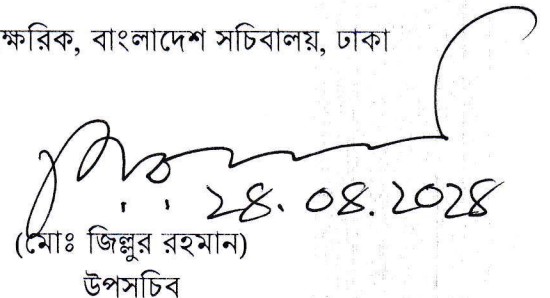 ক্ষরিক, বাংলাদেশ সচিবালয়, ঢাকা
২৪.০৪.২০২৪
(মোঃ জিল্লুর রহমান)
উপসচিব